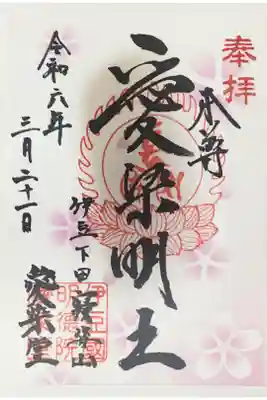 奉拝
本尊
愛染明王
伊豆下田寝姿山
愛染堂
令和六年
三月二十一日